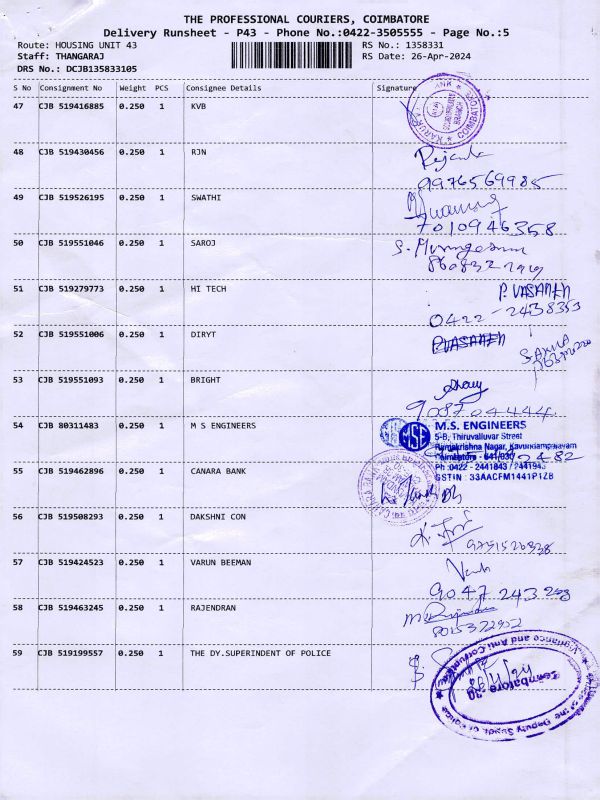 THE PROFESSIONAL COURIERS, COIMBATORE
Delivery Runsheet - P43 - Phone No.:0422-3505555 - Page No.:5
Route: HOUSING UNIT 43 RS No.: 1358331
Staff: THANGARAJ RS Date: 26-Apr-2024
DRS No.: DCJB135833105
S No Consignment No Weight PCS Consignee Details Signature
47 CJB 519416885 0.250 1 KVB
48 CJB 519430456 0.250 1 RJN
9976569985
49 CJB 519526195 0.250 1 SWATHI
7010946358
50 CJB 519551046 0.250 1 SAROJ
51 CJB 519279773 0.250 1 HI TECH P. VASANTH
0422-2438353
52 CJB 519551006 0.250 1 DIRYT
53 CJB 519551093 0.250 1 BRIGHT
908704444
54 CJB 80311483 0.250 1 M S ENGINEERS MSE M.S. ENGINEERS
5-B, Thiruvalluvar Street
Ramakrishna Nagar, Kavundampalayam
Ph :0422 - 2441843 /
GSTIN : 33AACFM1441P1ZB
55 CJB 519462896 0.250 1 CANARA BANK
56 CJB 519508293 0.250 1 DAKSHNI CON
57 CJB 519424523 0.250 1 VARUN BEEMAN
9047 243
58 CJB 519463245 0.250 1 RAJENDRAN
59 CJB 519199557 0.250 1 THE DY.SUPERINDENT OF POLICE
Vigilance and Anti-Corruption
Coimbatore